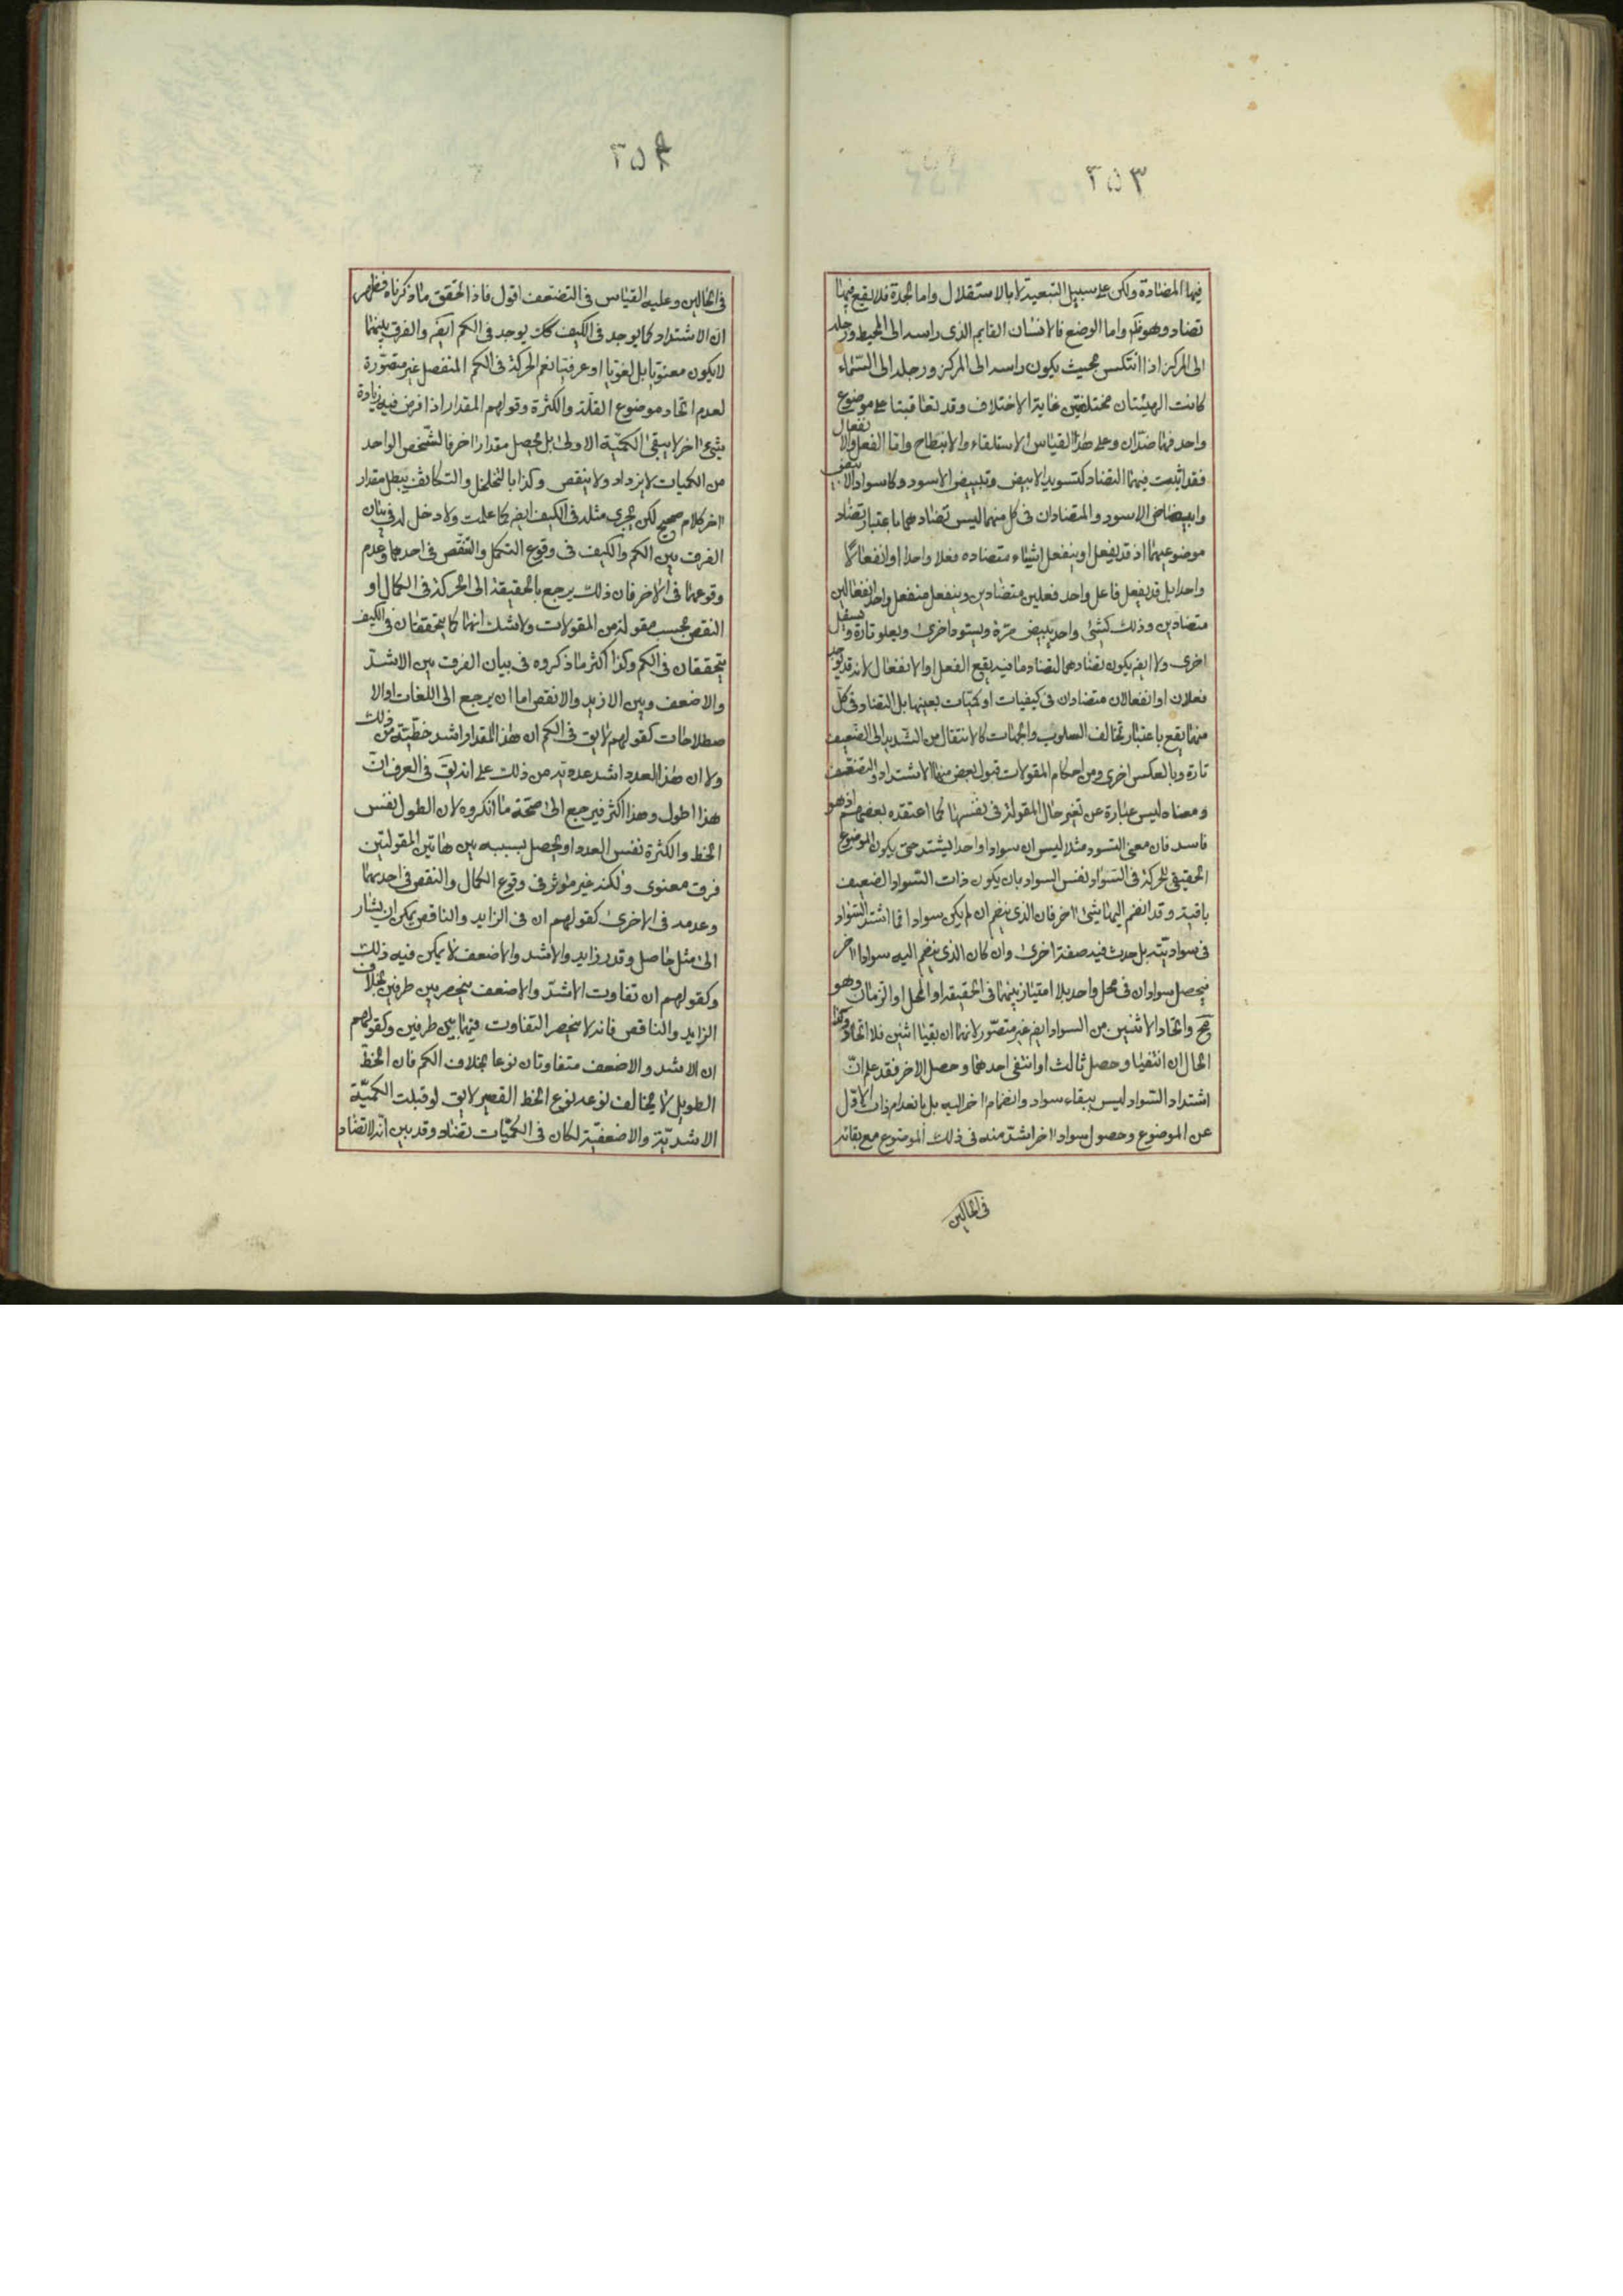 ٢٥٣
فيها المضادة ولكن على سبيل التبعية لا بالاستقلال واما الجدة فلا يقع فيها
تضاد وهو واما الوضع فالانسان القايم الذى راسه الى المحيط ورجله
الى المركز اذا انتكس بحيث يكون راسه الى المركز ورجله الى السّماء
كانت الهيئتان مختلفتين غاية الاختلاف وقد تعاقبتا على موضوع
واحد فهما ضدّان وعلى هذا القياس الاستلقاء والانبطاح وامّا الفعل والانفعال
فقد اثبت فيهما التضاد كتسويد الابيض وتبييض الاسود وكاسوداد الابيض
وابيضاض الاسود والمتضادان فى كل منهما ليس تضادهما باعتبار تضاد
موضوعيهما اذ قد يفعل او ينفعل اشياء متضاده فعلا واحدا او انفعالا
واحدا بل قد يفعل فاعل واحد فعلين متضادين وينفعل منفعل واحد انفعالين
متضادين وذلك كشئ واحد يبيض مرة ويسود اخرى ويعلو تارة ويسفل
اخرى ولا ايضا يكون تضادهما لتضاد ما فيه يقع الفعل او الانفعال لانه قد يوجد
فعلان او انفعالان متضادان فى كيفيات او كميّات بعينها بل التضاد فى كلّ
منهما يقع باعتبار تخالف السلوب والجهات كالانتقال من الشّديد الى الضّعيف
تارة وبالعكس اخرى ومن احكام المقولات قبول بعض منها الاشتداد والتضعّف
ومعناه ليس عبارة عن تغير حال المقولة فى نفسها كما اعتقده بعضهم اذ هو
فاسد فان معنى التسود مثلا ليس ان سوادا واحدا يشتد حتى يكون الموضوع
الحقيقى للحركة فى السّواد نفس السواد بان يكون ذات السّواد الضعيف
باقية وقد انضم اليها شئ اخر فان الذى ينضم ان لم يكن سوادا فما اشتد السّواد
فى سواديّته بل حدث فيه صفة اخرى وان كان الذى ينضم اليه سوادا اخر
فيحصل سوادان فى محل واحد بلا امتياز بينهما فى الحقيقه او المحل او الزمان وهو
مح واتحاد الاثنين من السواد ايض غير متصّور لانهما ان بقيا اثنين فلا اتحاد وكذا
الحال ان انتفيا وحصل ثالث او انتفى احدهما وحصل الاخر فقد علم انّ
اشتداد السّواد ليس ببقاء سواد وانضمام اخر اليه بل بانعدام ذات الاوّل
عن الموضوع وحصول سواد اخر اشدّ منه فى ذلك الموضوع مع بقائه
فى الحالين
٢٥٤
فى الحالين وعليه القياس فى التضعّف اقول فاذا تحقق ما ذكرناه فظهر
انّ الاشتداد كما يوجد فى الكيف كك يوجد فى الكم ايض والفرق بينهما
لايكون معنويا بل لغويا او عرفيا نعم الحركة فى الكم المنفصل غير متصّورة
لعدم اتحاد موضوع القلّة والكثرة وقولهم المقدار اذا فرض فيه زيادة
شئ اخر لا يبقى الكميّة الاولى بل يحصل مقدار اخر فالشّخص الواحد
من الكميات لا يزداد ولا ينقص وكذا بالتخلخل والتكاثف يبطل مقدار
اخر كلام صحيح لكن يجرى مثله فى الكيف ايض كما علمت ولا دخل له فى بيان
الفرق بين الكم والكيف فى وقوع التكمل والتنقّص فى احدهما وعدم
وقوعهما فى الاخر فان ذلك يرجع بالحقيقة الى الحركة فى الكمال او
النقص بحسب مقولة من المقولات ولا شك انهما كما يتحققان فى الكيف
يتحققان فى الكم وكذا اكثر ما ذكروه فى بيان الفرق بين الاشدّ
والاضعف وبين الازيد والانقص اما ان يرجع الى اللغات او الا
صطلاحات كقولهم لا يق فى الكم ان هذا المقدار اشد خطّية من ذلك
ولا ان هذا العدد اشد عددية من ذلك على انه يق فى العرف انّ
هذا اطول وهذا اكثر فيرجع الى صحّة ما انكروه لان الطول نفس
الخط والكثرة نفس العدد او يحصل بسببه بين هاتين المقولتين
فرق معنوى ولكنه غير مؤثر فى وقوع الكمال والنقص فى احديهما
وعدمه فى الاخرى كقولهم ان فى الزايد والناقص يمكن ان يشار
الى مثل حاصل وقدر زايد والاشد والاضعف لا يمكن فيه ذلك
وكقولهم ان تفاوت الاشدّ والاضعف ينحصر بين طرفين بخلاف
الزايد والناقص فانه لا ينحصر التفاوت فيهما بين طرفين وكقولهم
ان الاشد والاضعف متفاوتان نوعا بخلاف الكم فان الخطّ
الطويل لا يخالف نوعه نوع الخط القصير لا يق لو قبلت الكميّة
الاشديّة والاضعفيّة لكان فى الكميّات تضاد وقد بين انّه لا تضاد